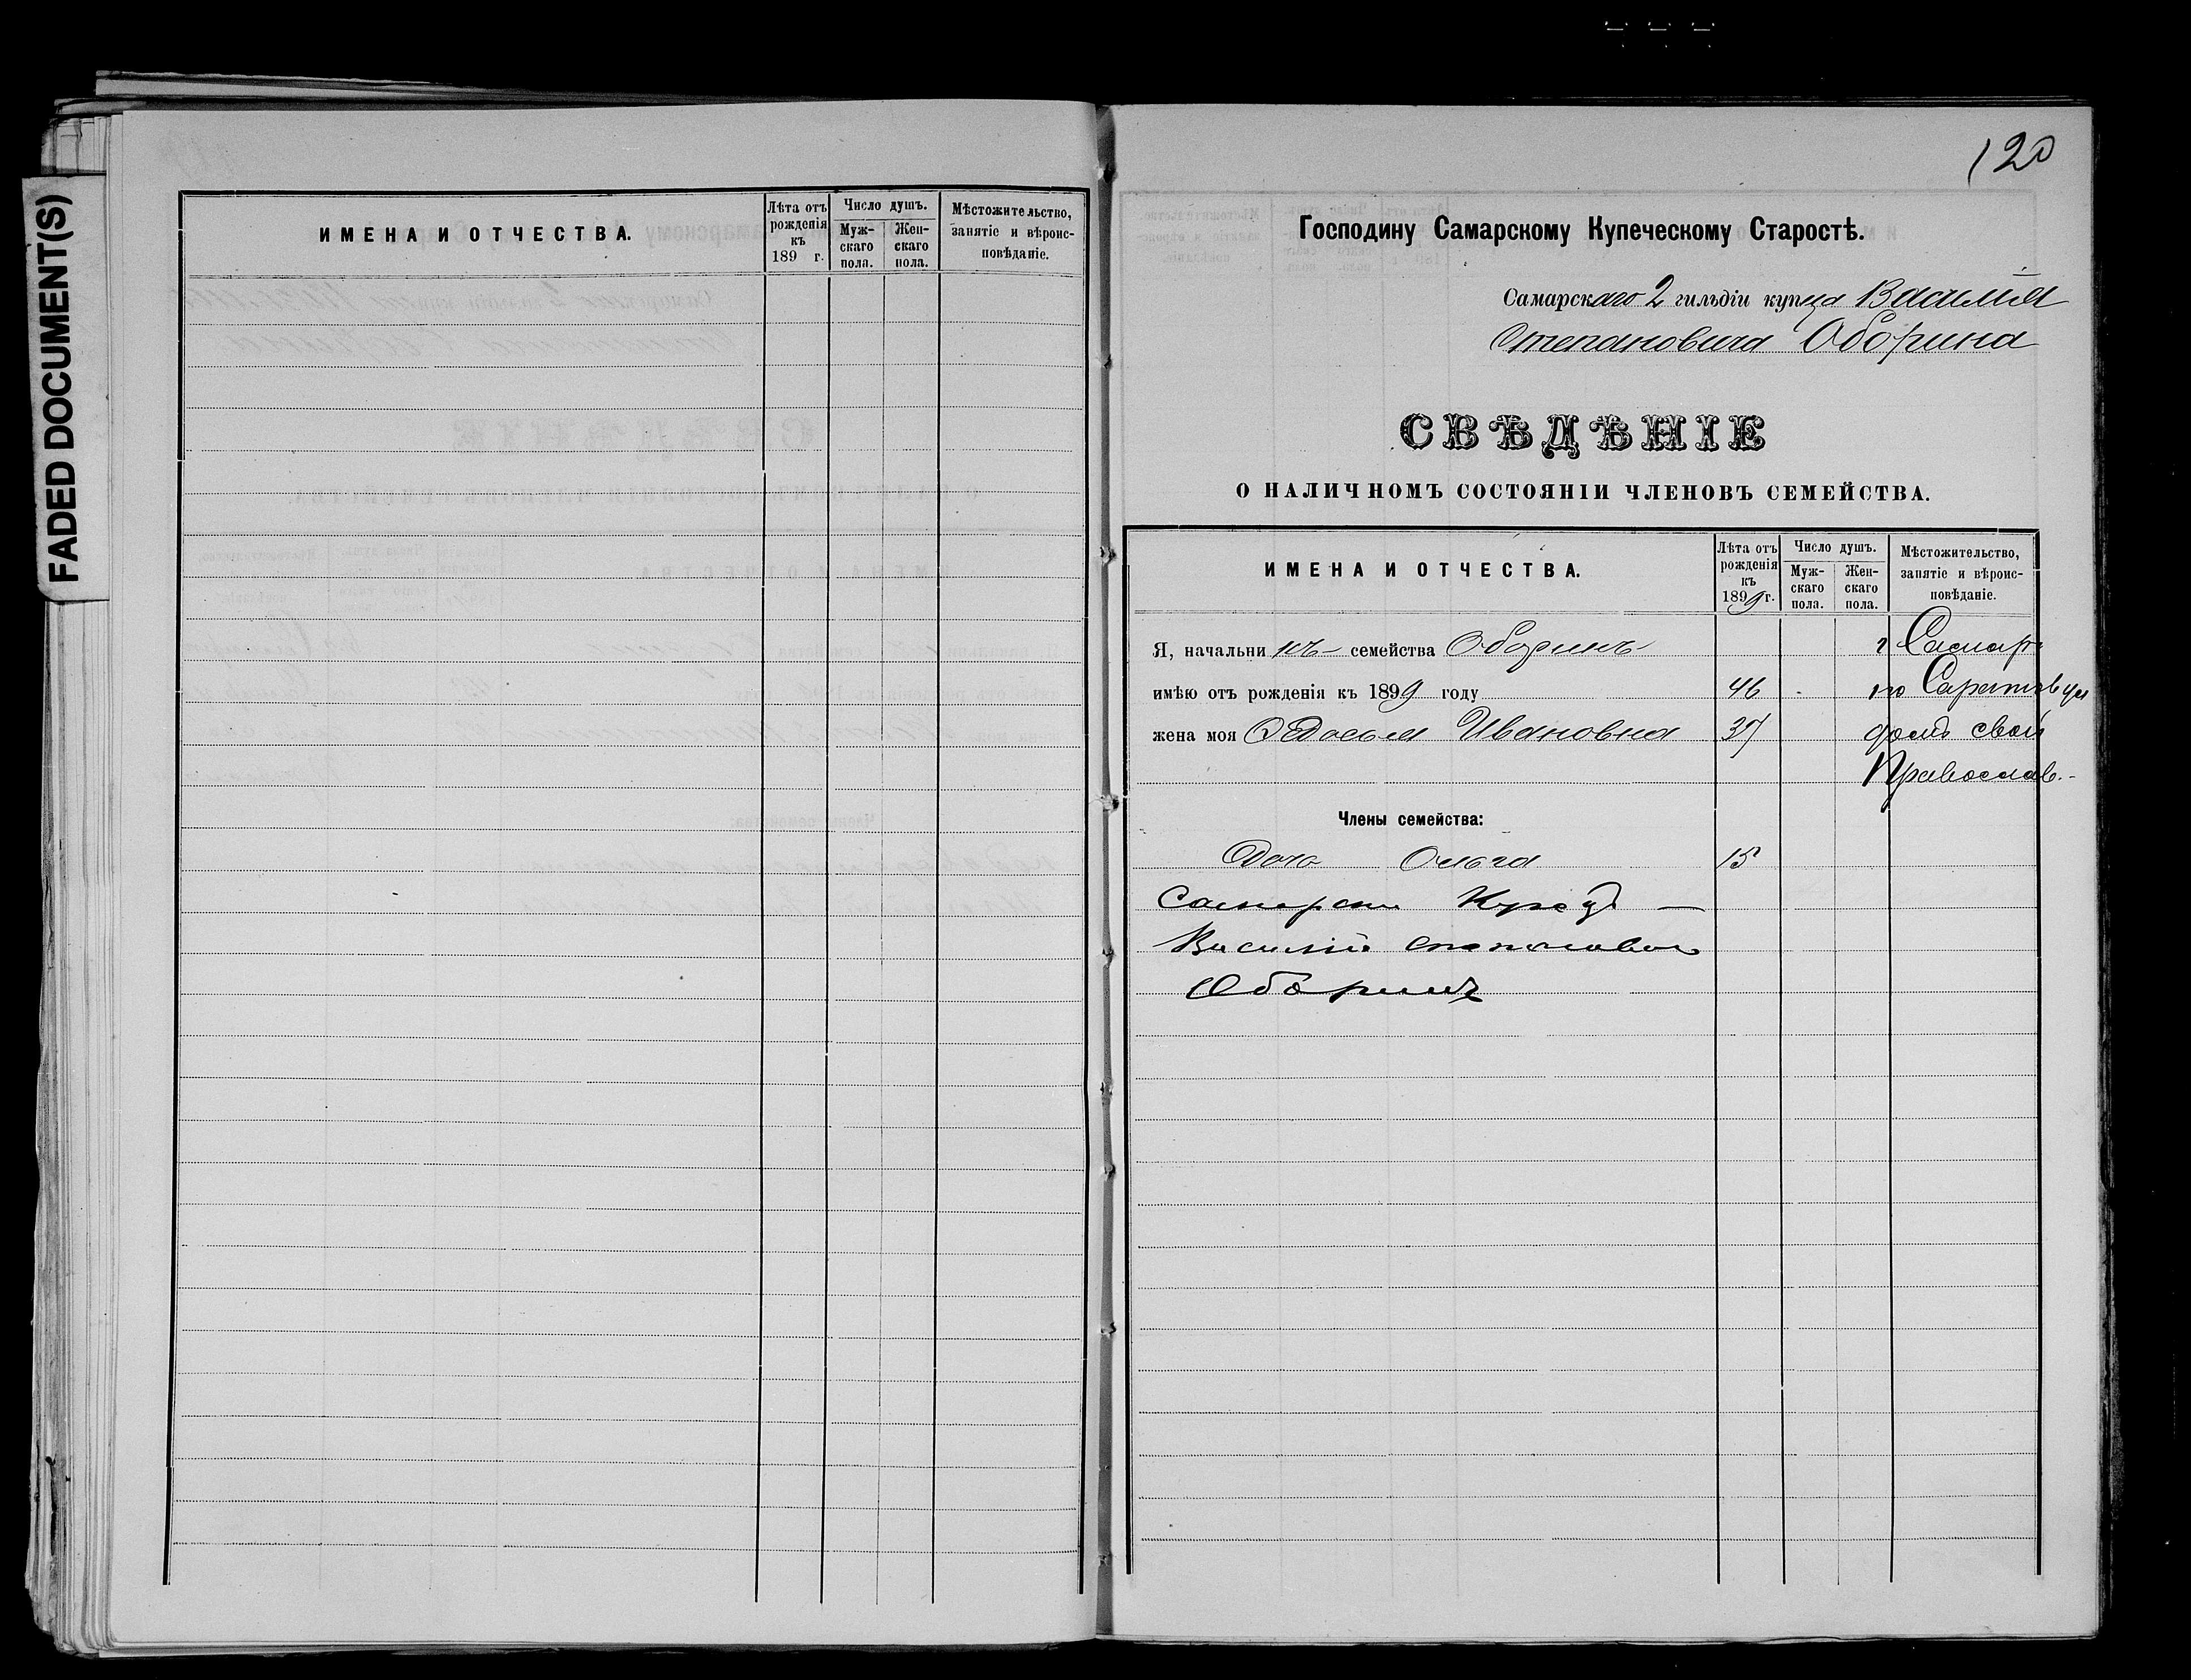 FADED DOCUMENT(S)
ИМЕНА И ОТЧЕСТВА.
Лѣта отъ рожденія къ 189 г.
Число душъ.
Муж-скаго пола.
Жен-скаго пола.
Мѣстожительство, занятіе и вѣроис-повѣданіе.
120
Господину Самарскому Купеческому Старостѣ.
Самарскаго 2 гильдіи купца Василія
Степановича Оборина
СВѢДѢНІЕ
О НАЛИЧНОМЪ СОСТОЯНІИ ЧЛЕНОВЪ СЕМЕЙСТВА.
ИМЕНА И ОТЧЕСТВА.
Лѣта отъ рожденія къ 1899 г.
Число душъ.
Муж-скаго пола.
Жен-скаго пола.
Мѣстожительство, занятіе и вѣроис-повѣданіе.
Я, начальникъ семейства Оборинъ г Самар
имѣю отъ рожденія къ 1899 году 46 по Саратов ул
жена моя Ивановна 37 домъ свой
Православ.
Члены семейства:
Дочь Ольга 15
Самарски Купецъ
Василій Степановъ
Оборинъ